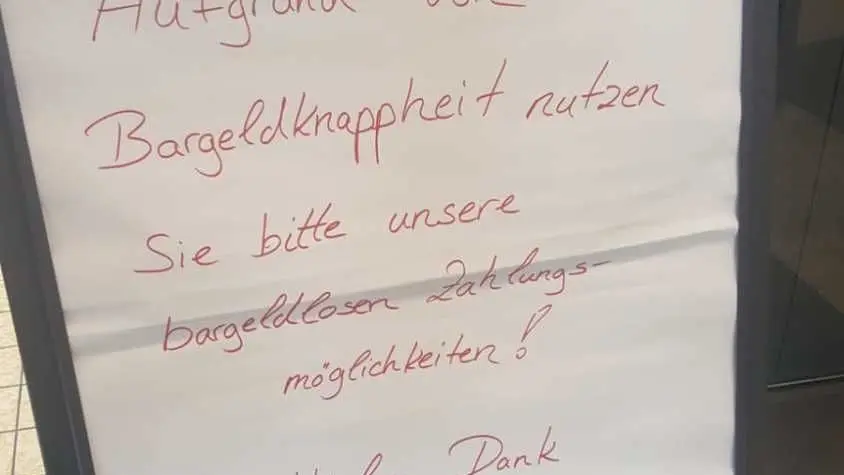 Aufgrund
Bargeldknappheit nutzen
Sie bitte unsere
bargeldlosen Zahlungs-
möglichkeiten!
Dank